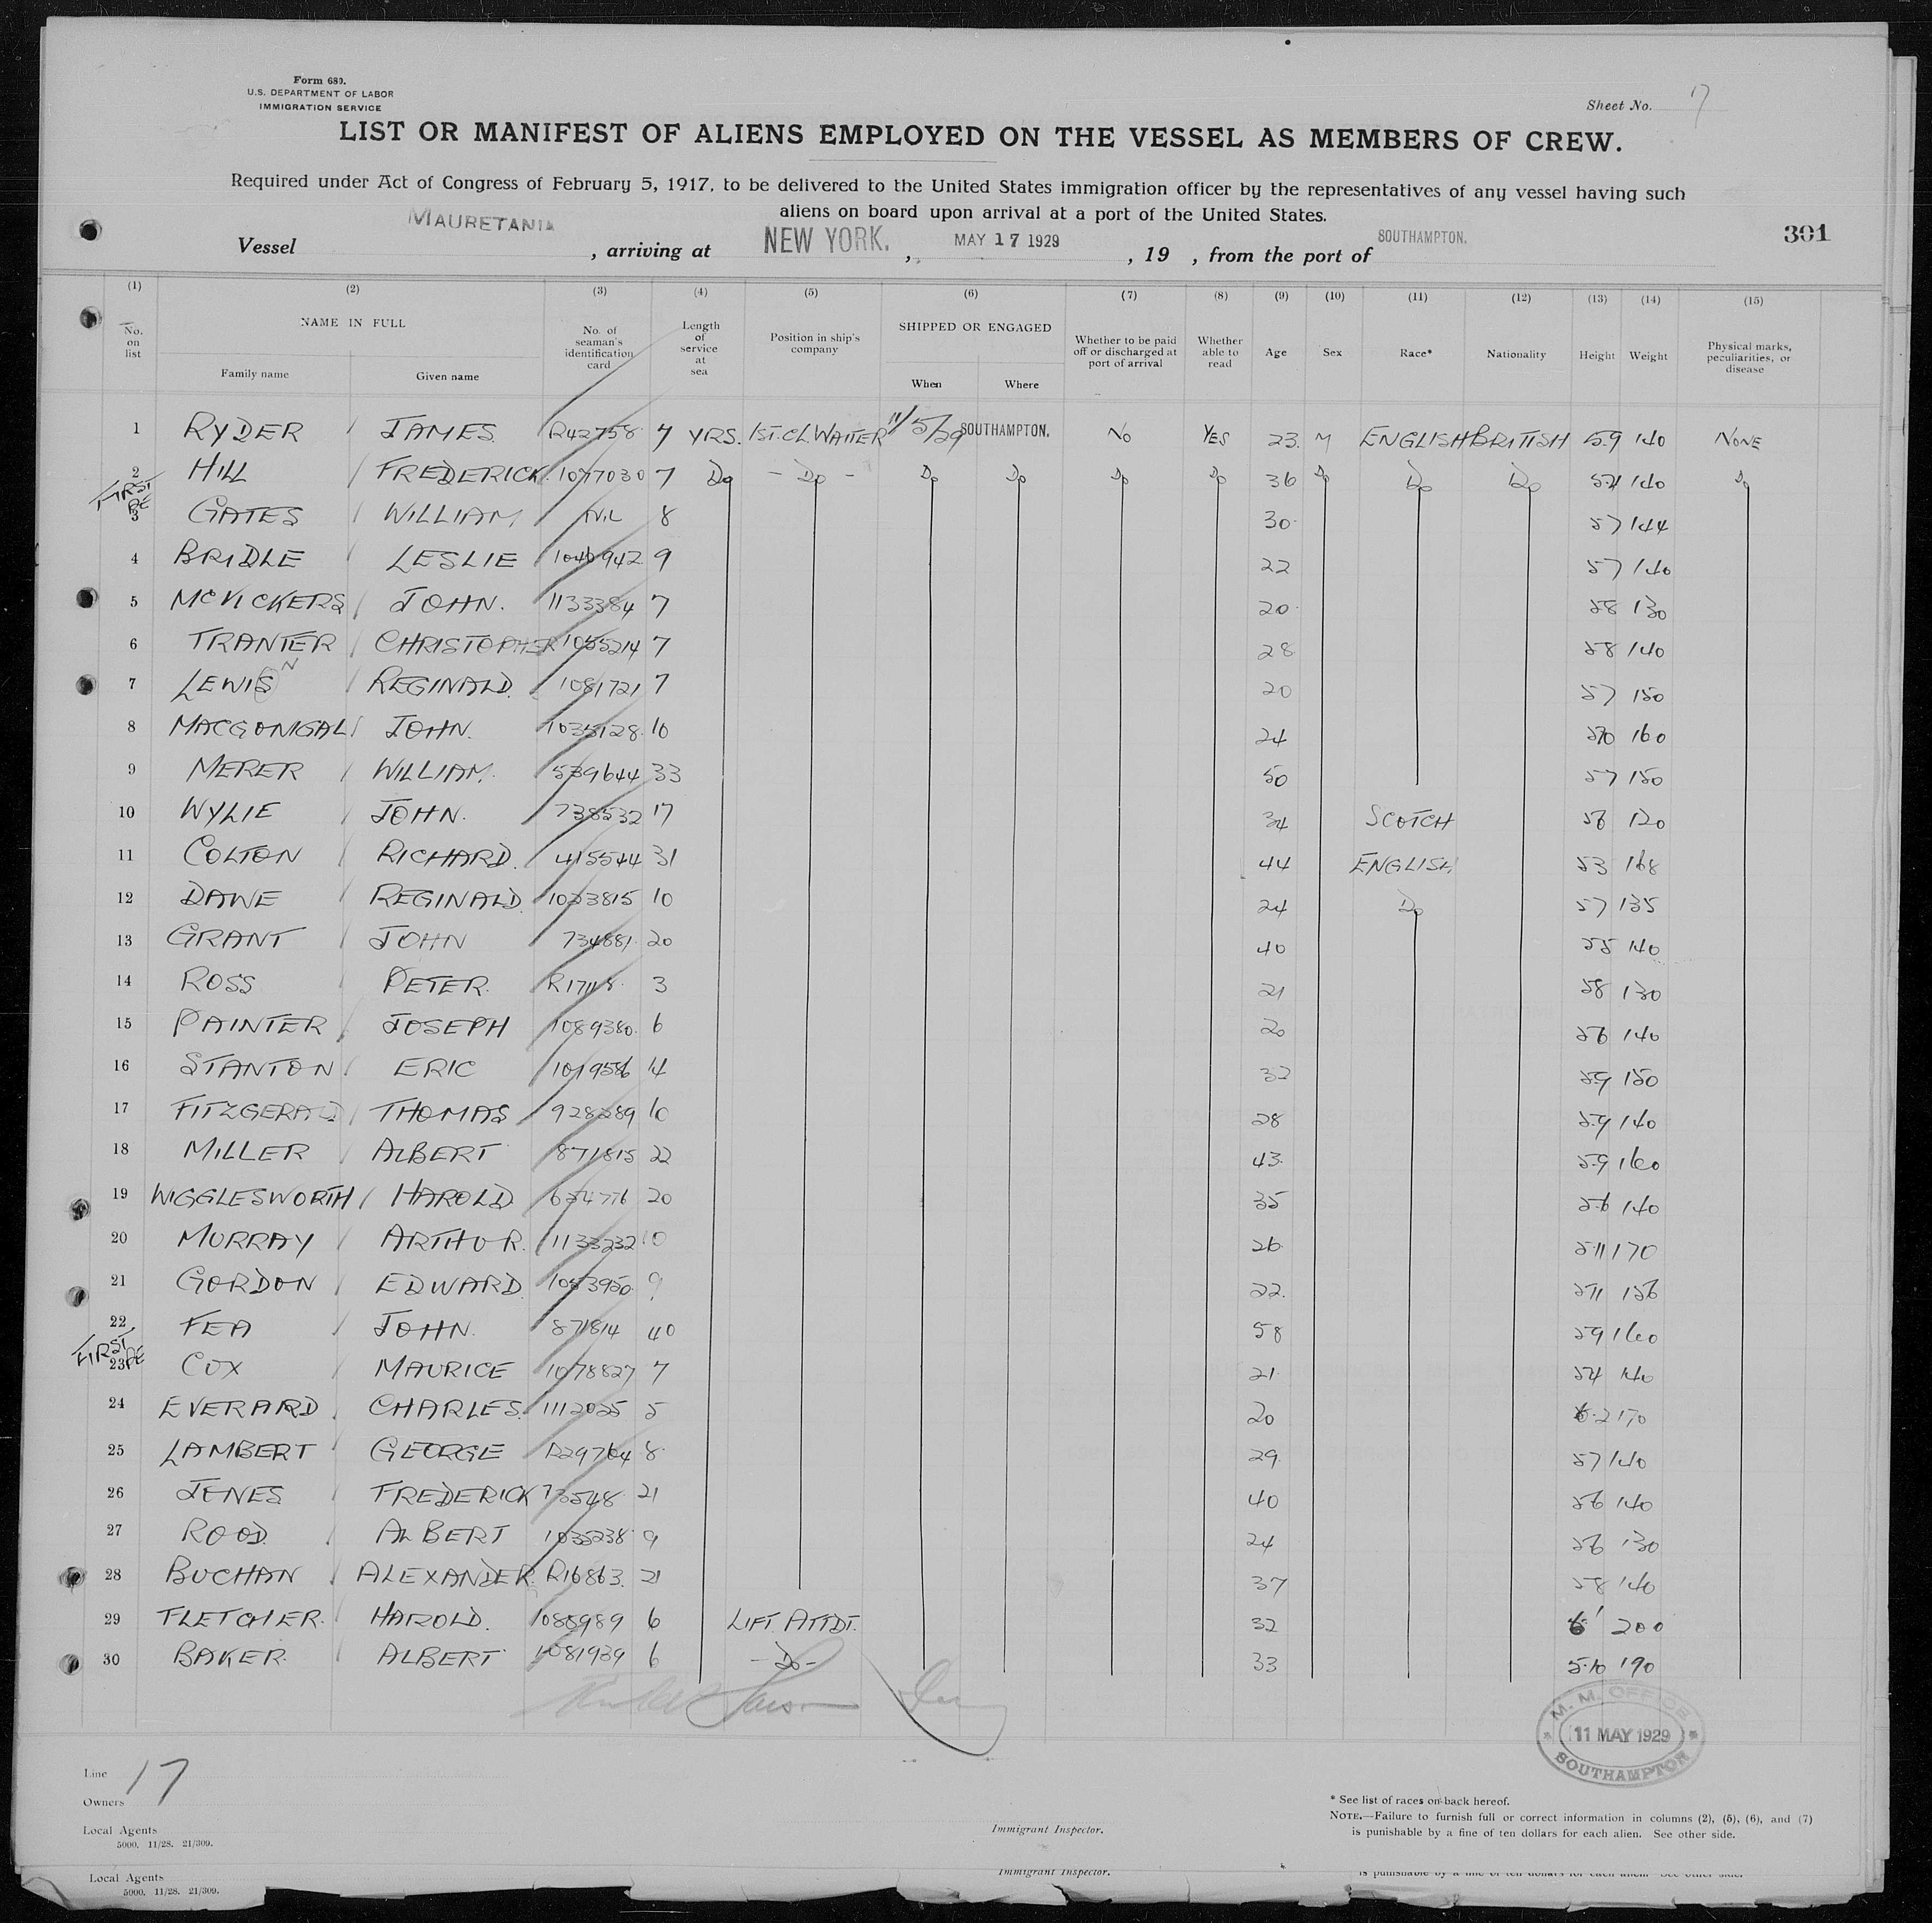 Form 680.
U.S. DEPARTMENT OF LABOR
IMMIGRATION SERVICE
Sheet No. 17
LIST OR MANIFEST OF ALIENS EMPLOYED ON THE VESSEL AS MEMBERS OF CREW.
Required under Act of Congress of February 5, 1917, to be delivered to the United States immigration officer by the representatives of any vessel having such
aliens on board upon arrival at a port of the United States.
Vessel MAURETANIA, arriving at NEW YORK., MAY 17 1929, 19 , from the port of SOUTHAMPTON. 301
(1) (2) (3) (4) (5) (6) (7) (8) (9) (10) (11) (12) (13) (14) (15)
No. on list NAME IN FULL Family name Given name No. of seaman's identification card Length of service at sea Position in ship's company SHIPPED OR ENGAGED When Where Whether to be paid off or discharged at port of arrival Whether able to read Age Sex Race* Nationality Height Weight Physical marks, peculiarities, or disease
1 RYDER JAMES R42758 7 YRS. 1ST.CL.WAITER 11/5/29 SOUTHAMPTON. NO YES 23 M ENGLISH BRITISH 5.9 140 NONE
2 HILL FREDERICK 1077030 7 Do - Do - Do Do Do Do 36 Do Do Do 140 Do
FIRST
3 GATES WILLIAM NIL 8 30 57 144
4 BRIDLE LESLIE 9 22 57 140
5 McVICKERS JOHN. 1133384 7 20 58 130
6 TRANTER CHRISTOPHER 1055214 7 28 58 140
7 LEWIS N REGINALD. 1081721 7 20 57 150
8 MACGONIGAL JOHN. 1035128 10 24 160
9 MERER WILLIAM. 539644 33 50 57 150
10 WYLIE JOHN. 738532 17 34 SCOTCH 56 120
11 COLTON RICHARD. 415544 31 44 ENGLISH. 53 168
12 DAWE REGINALD. 1033815 10 24 Do 57 135
13 GRANT JOHN 734881 20 40 55 140
14 ROSS PETER. 3 21 58 130
15 PAINTER JOSEPH 1089380 6 20 56 140
16 STANTON ERIC 1019586 14 32 5.9 150
17 FITZGERALD THOMAS 928289 10 28 5.9 140
18 MILLER ALBERT 871815 22 43 5.9 160
19 WIGGLESWORTH HAROLD 634776 20 35 5.6 140
20 MURRAY ARTHUR. 1133232 10 26 5.11 170
21 GORDON EDWARD. 1053950 9 22 511 156
22 FEA JOHN. 871814 40 58 59 160
FIRST
23 COX MAURICE 1078827 7 21 54 140
24 EVERARD CHARLES. 1112025 5 20 6.2 170
25 LAMBERT GEORGE R29764 8 29 57 140
26 JENES FREDERICK 73548 21 40 56 140
27 ROOD. ALBERT 1035238 9 24 56 130
28 BUCHAN ALEXANDER. R16863 21 37 58 140
29 FLETCHER. HAROLD. 1088989 6 LIFT. ATTDT. 32 6' 200
30 BAKER. ALBERT 1081939 6 - Do - 33 5.10 190
M. M. OFFICE
11 MAY 1929
SOUTHAMPTON
Line 17
Owners
Local Agents
5000. 11/28. 21/309.
Immigrant Inspector.
* See list of races on back hereof.
NOTE.—Failure to furnish full or correct information in columns (2), (5), (6), and (7)
is punishable by a fine of ten dollars for each alien. See other side.
Local Agents
5000. 11/28. 21/309.
Immigrant Inspector.
is punishable by a fine of ten dollars for each alien. See other side.